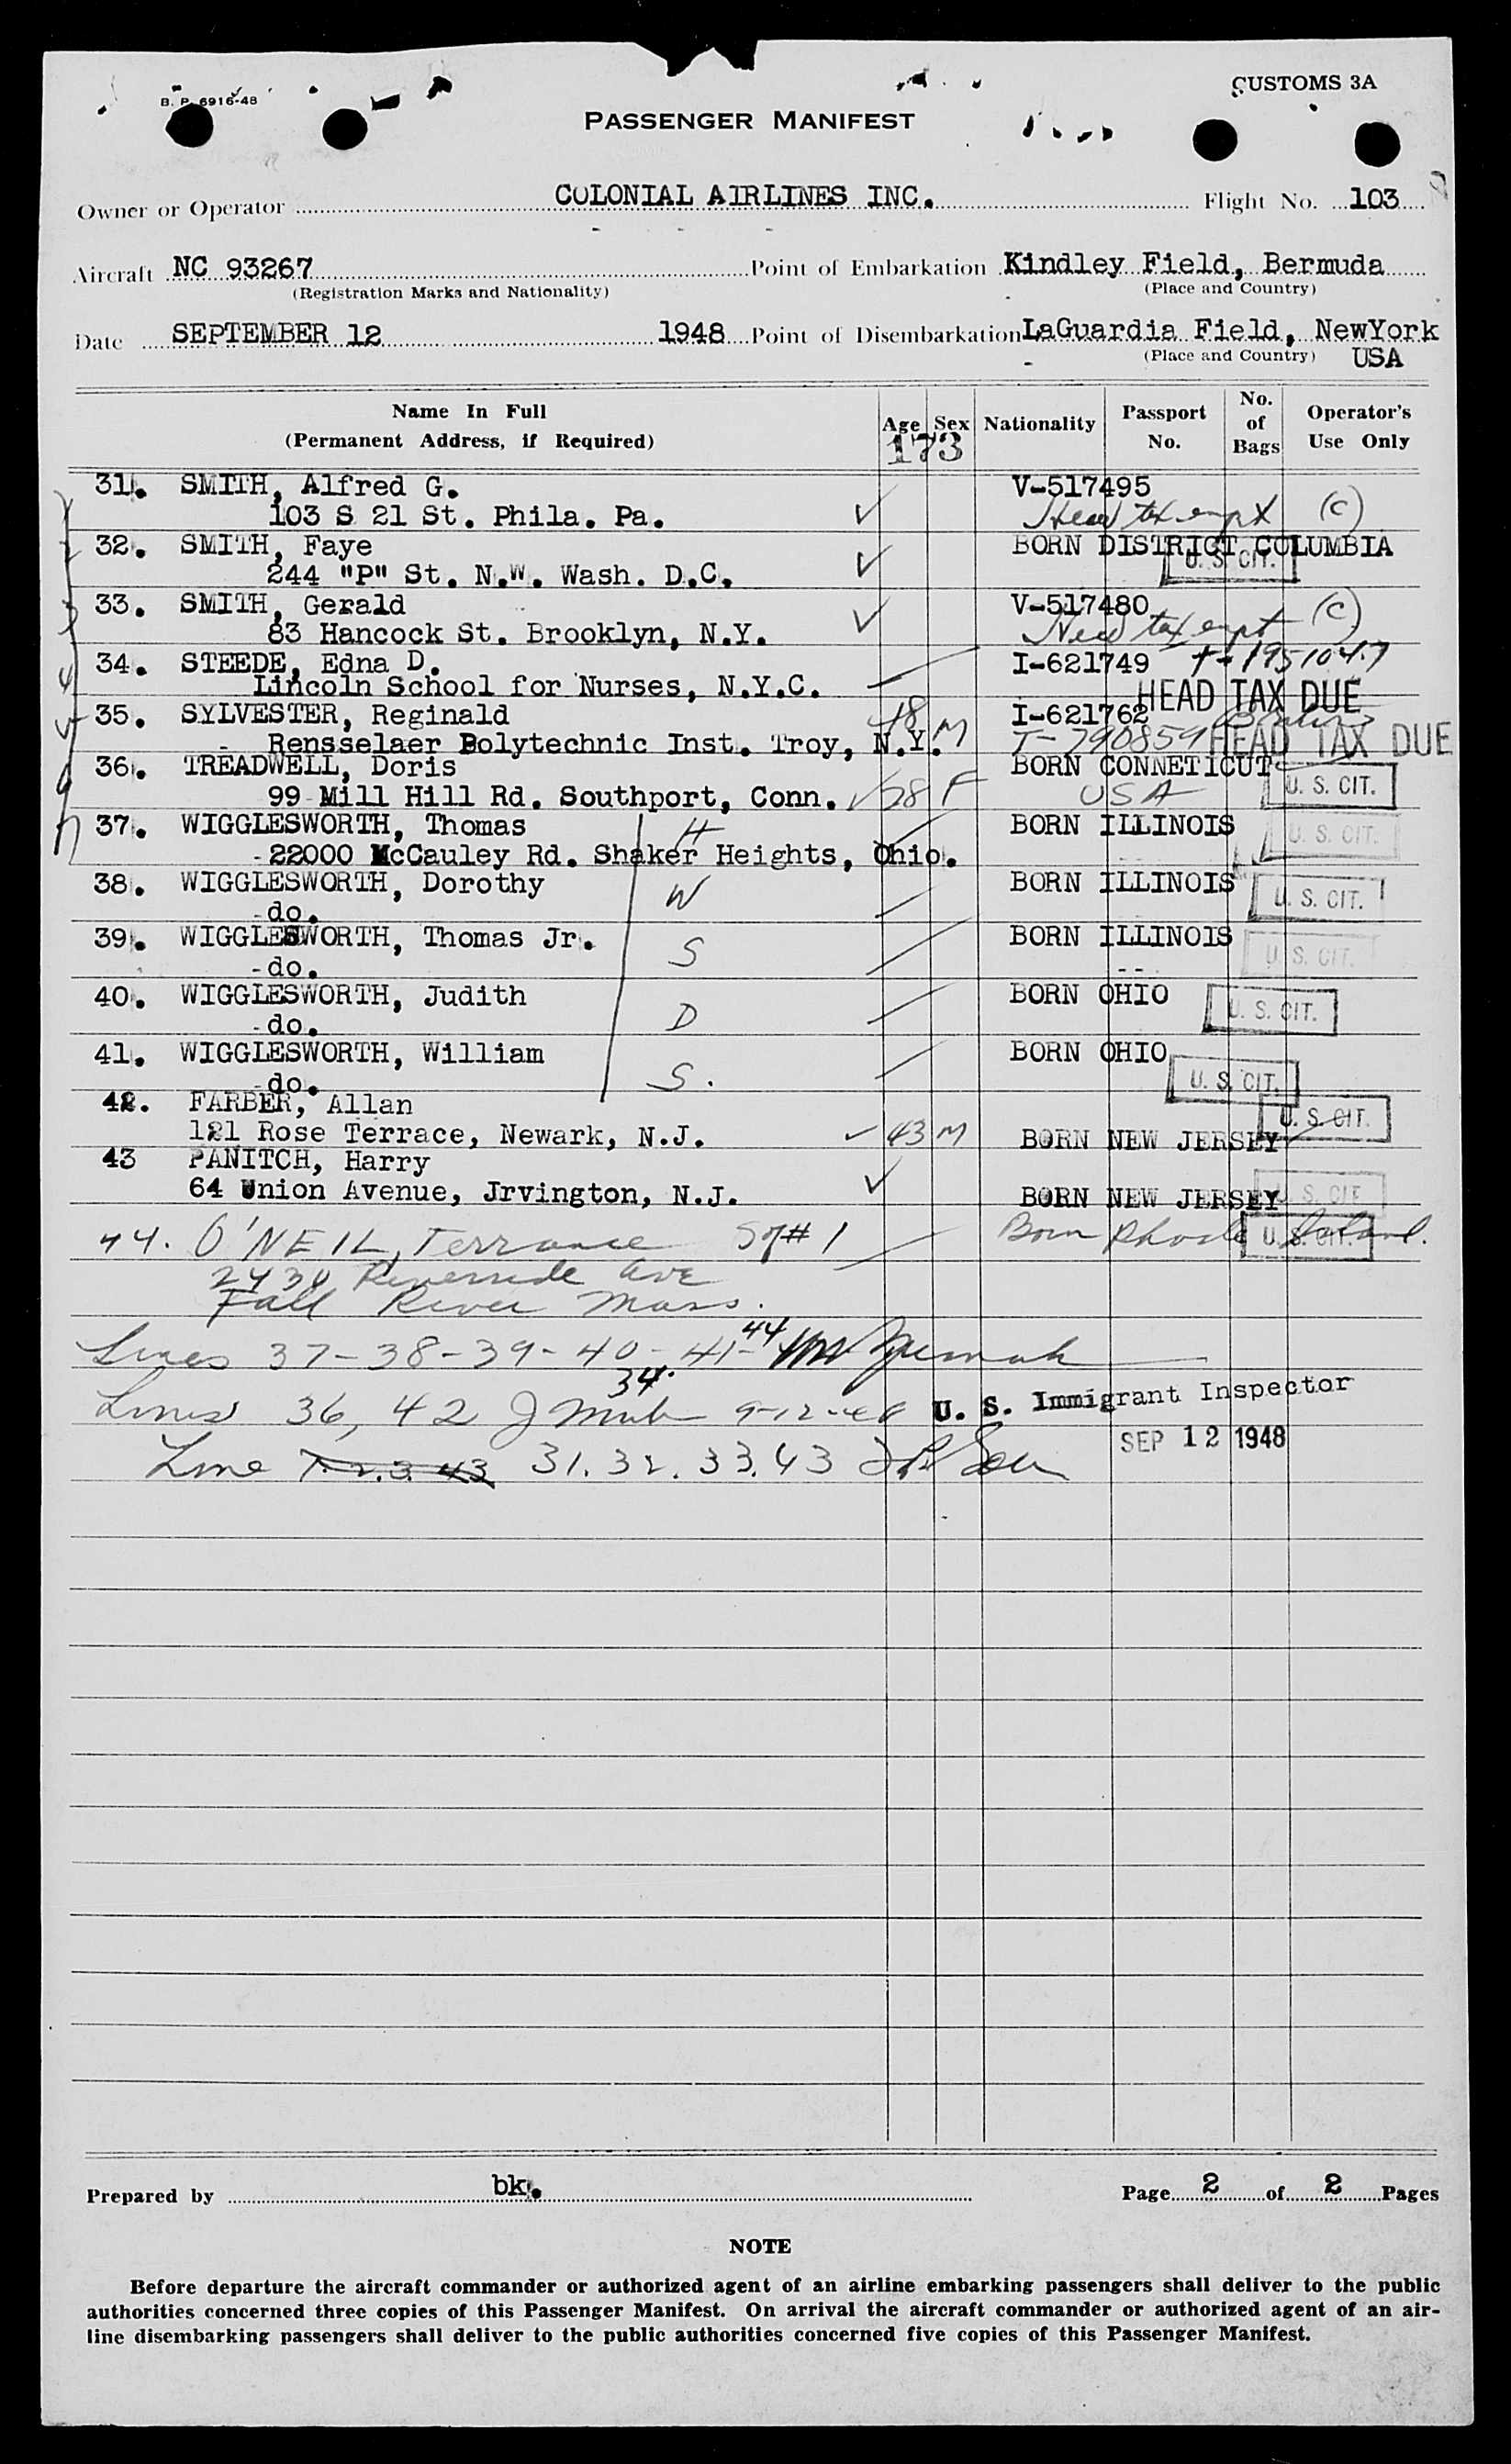 B. P. 6916-48
CUSTOMS 3A
PASSENGER MANIFEST
Owner or Operator COLONIAL AIRLINES INC. Flight No. 103
Aircraft NC 93267 Point of Embarkation Kindley Field, Bermuda
(Registration Marks and Nationality) (Place and Country)
Date SEPTEMBER 12 1948 Point of Disembarkation LaGuardia Field, NewYork
(Place and Country) USA
Name In Full Age Sex Nationality Passport No. No. of Bags Operator's Use Only
(Permanent Address, if Required)
173
31. SMITH, Alfred G. V-517495
103 S 21 St. Phila. Pa. Head tax empt (C)
32. SMITH, Faye BORN DISTRICT COLUMBIA
244 "P" St. N.W. Wash. D.C. U. S. CIT.
33. SMITH, Gerald V-517480
83 Hancock St. Brooklyn, N.Y. Head tax empt (C)
34. STEEDE, Edna D. I-621749 T-1951047
Lincoln School for Nurses, N.Y.C. HEAD TAX DUE
35. SYLVESTER, Reginald 48 M I-621762
Rensselaer Polytechnic Inst. Troy, N.Y. T-790859 HEAD TAX DUE
36. TREADWELL, Doris BORN CONNETICUT
99 Mill Hill Rd. Southport, Conn. 28 F USA U. S. CIT.
37. WIGGLESWORTH, Thomas H BORN ILLINOIS
22000 McCauley Rd. Shaker Heights, Ohio. U. S. CIT.
38. WIGGLESWORTH, Dorothy W BORN ILLINOIS
do. U. S. CIT.
39. WIGGLESWORTH, Thomas Jr. S BORN ILLINOIS
do. U. S. CIT.
40. WIGGLESWORTH, Judith BORN OHIO
do. D U. S. CIT.
41. WIGGLESWORTH, William BORN OHIO
do. S. U. S. CIT.
42. FARBER, Allan
121 Rose Terrace, Newark, N.J. 43 M BORN NEW JERSEY U. S. CIT.
43 PANITCH, Harry
64 Union Avenue, Jrvington, N.J. BORN NEW JERSEY U. S. CIT
44. O'NEIL, Terrance Sf# 1 Born Rhode Island. U. S. CIT.
2430 Riverside Ave
Fall River Mass.
Lines 37-38-39-40-41-44
Lines 36, 42 34. 9-12-48 U. S. Immigrant Inspector
SEP 12 1948
Line 1. 2. 3. 43 31. 32. 33. 43
Prepared by bk. Page 2 of 2 Pages
NOTE
Before departure the aircraft commander or authorized agent of an airline embarking passengers shall deliver to the public
authorities concerned three copies of this Passenger Manifest. On arrival the aircraft commander or authorized agent of an air-
line disembarking passengers shall deliver to the public authorities concerned five copies of this Passenger Manifest.